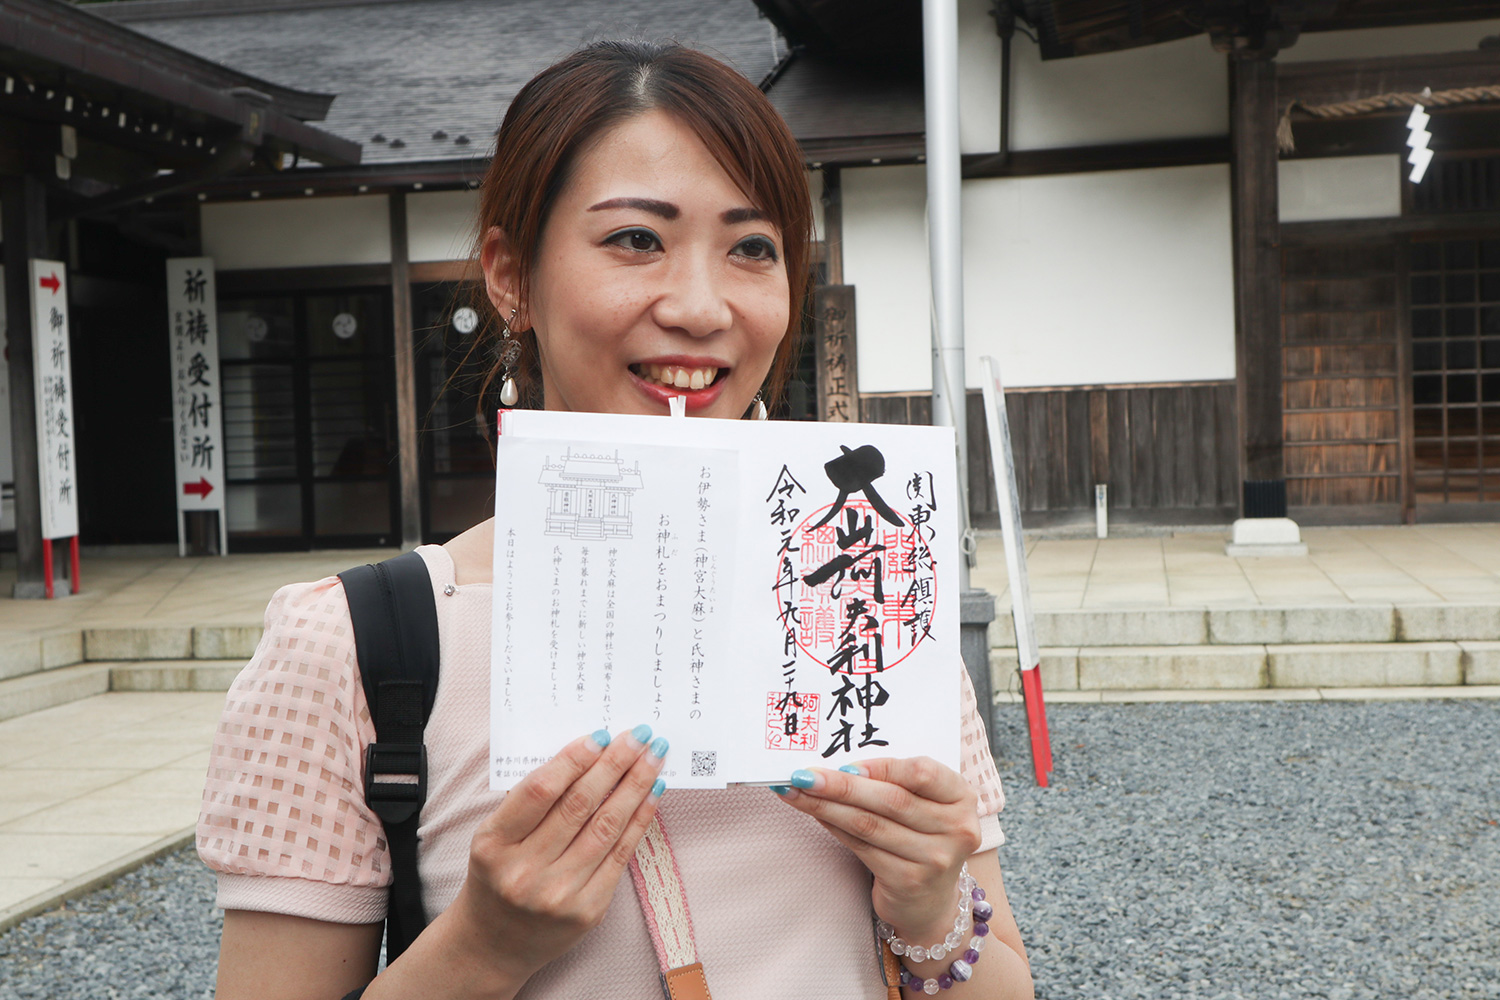 御祈祷受付所
祈祷受付所
玄関よりお入りください
御祈祷正式
関東総鎮護
大山阿夫利神社
令和元年九月二十九日
阿夫利
お伊勢さま(神宮大麻)と氏神さまの
じんぐうたいま
お神札をおまつりしましょう
ふだ
神宮大麻は全国の神社で頒布されてい
毎年暮れまでに新しい神宮大麻と
氏神さまのお神札を受けましょう。
本日はようこそお参りくださいました。
神奈川県神社
電話